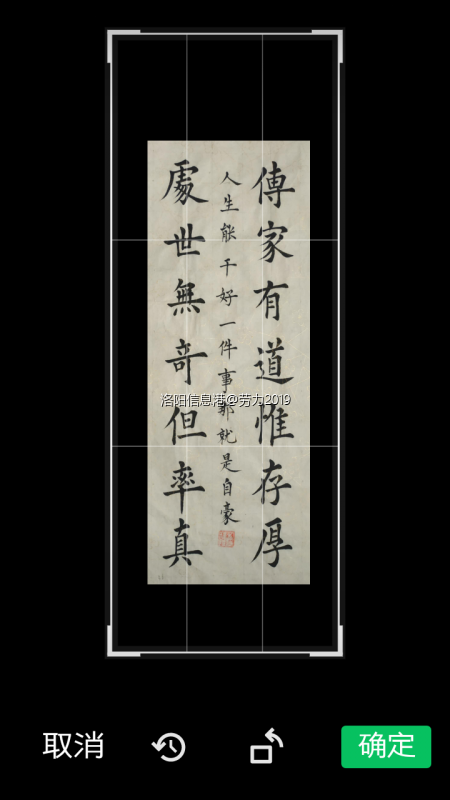 傳家有道惟存厚
人生能干好一件事那就是自豪
處世無奇但率真
洛阳信息港@劳力2019
取消
确定